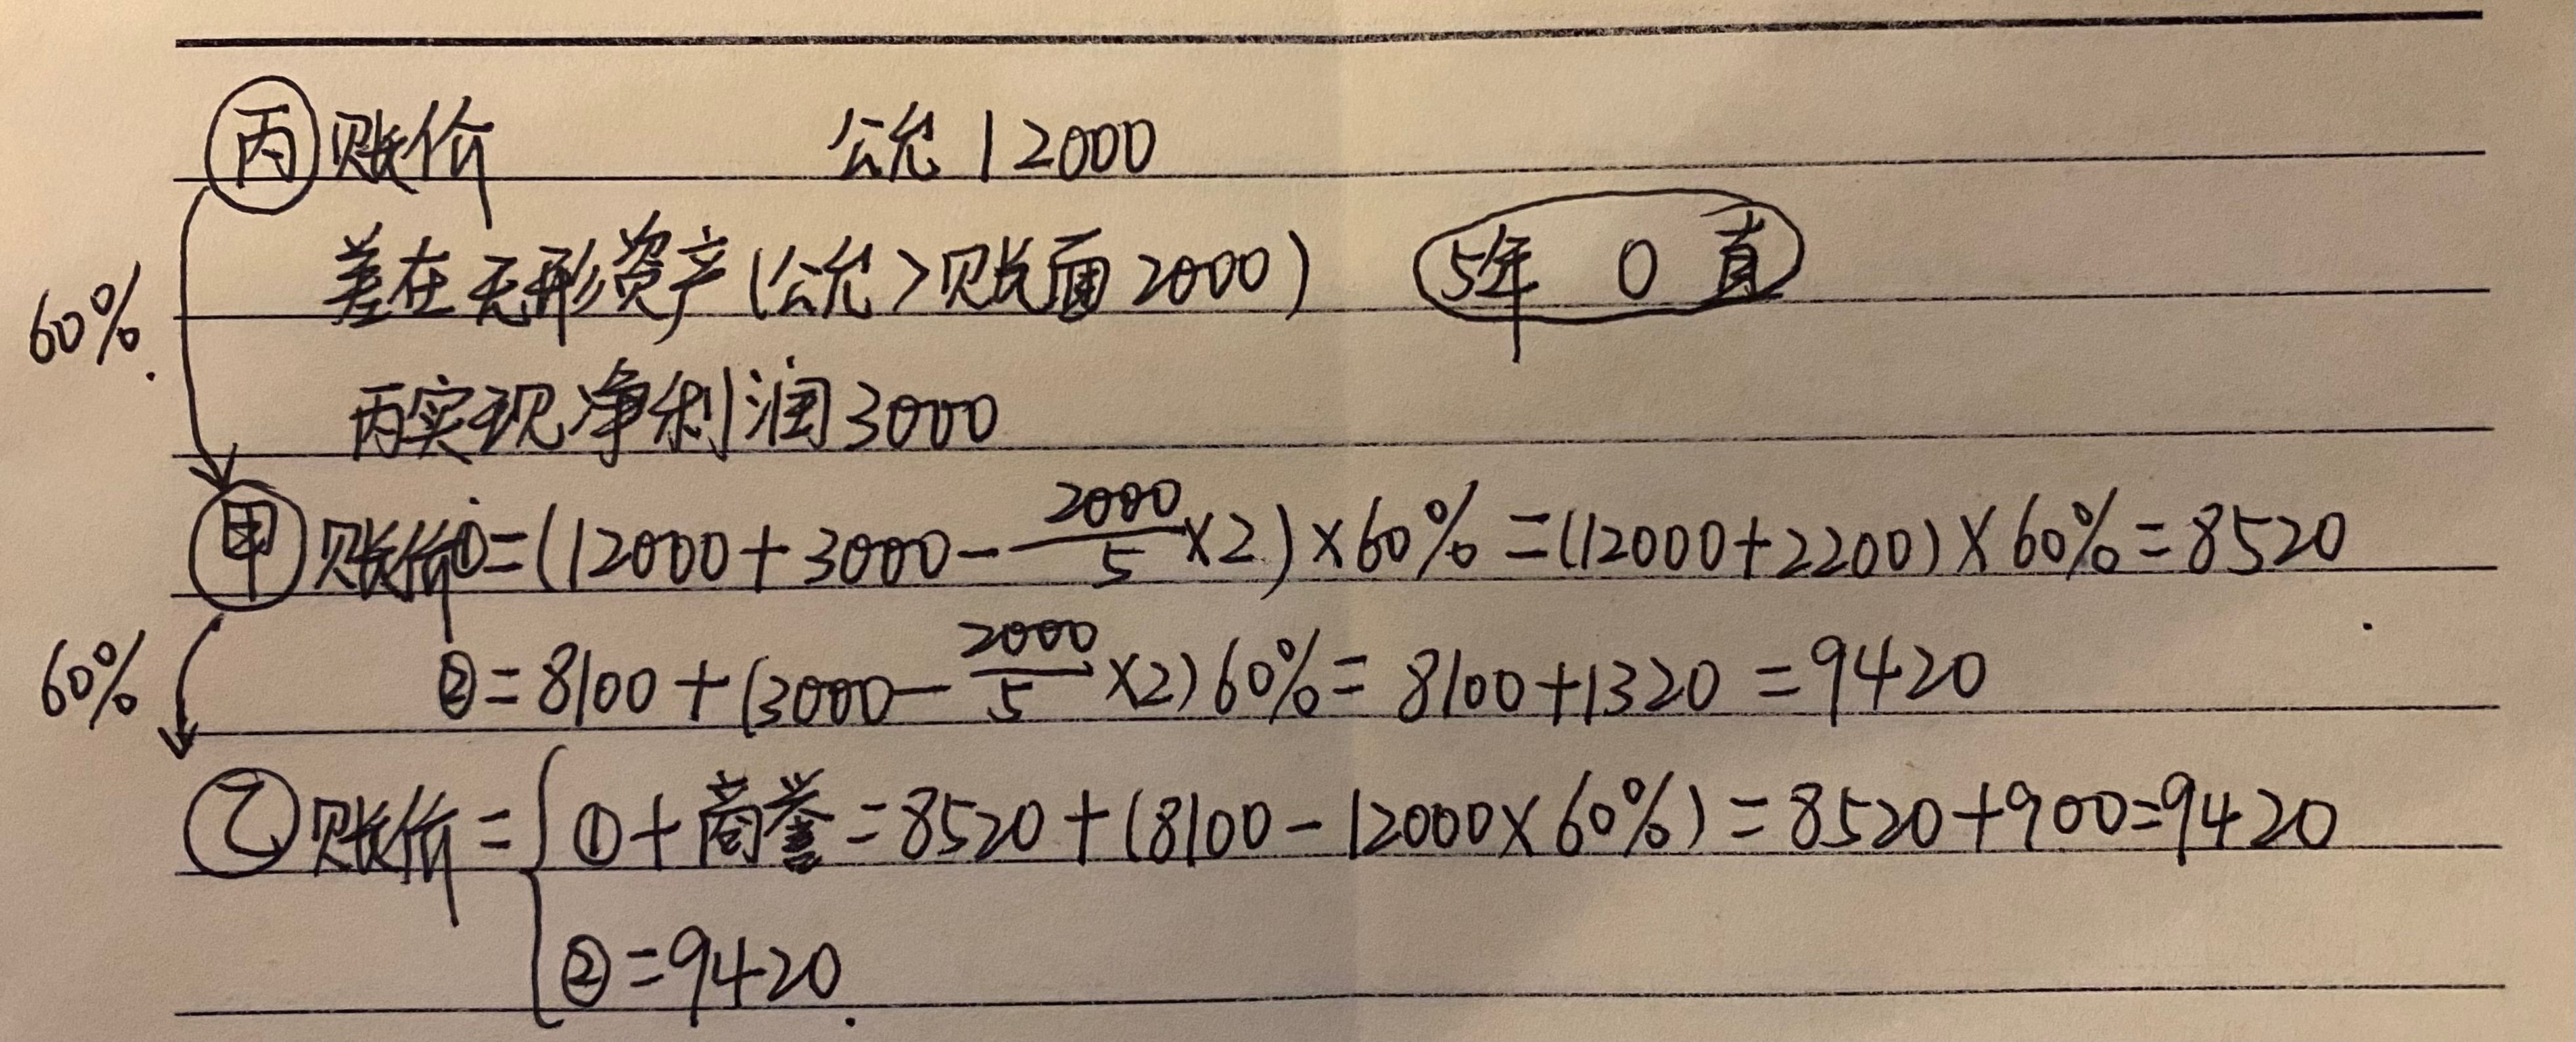 丙 账价 公允 12000
差在无形资产(公允>账面2000) 5年 0 直
60%
丙实现净利润3000
甲 账价①=(12000+3000-2000/5×2)×60%=(12000+2200)×60%=8520
60% ②=8100+(3000-2000/5×2)60%=8100+1320=9420
乙 账价={①+商誉=8520+(8100-12000×60%)=8520+900=9420
②=9420.